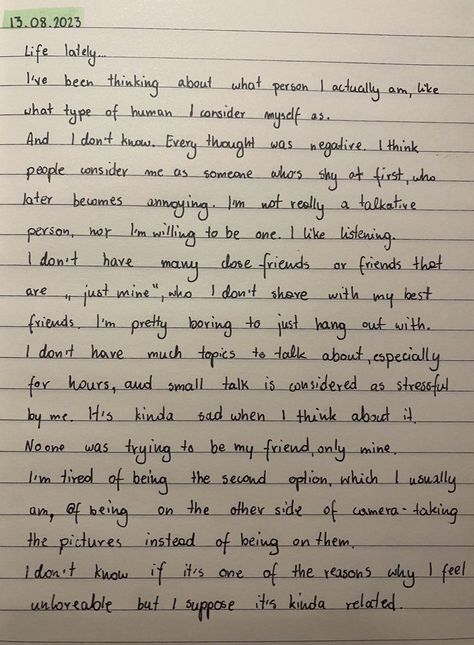 13.08.2023
Life lately...
I've been thinking about what person I actually am, like
what type of human I consider myself as.
And I don't know. Every thought was negative. I think
people consider me as someone who's shy at first, who
later becomes annoying. I'm not really a talkative
person, nor I'm willing to be one. I like listening.
I don't have many close friends or friends that
are „just mine", who I don't share with my best
friends. I'm pretty boring to just hang out with.
I don't have much topics to talk about, especially
for hours, and small talk is considered as stressful
by me. It's kinda sad when I think about it.
No one was trying to be my friend, only mine.
I'm tired of being the second option, which I usually
am, of being on the other side of camera - taking
the pictures instead of being on them.
I don't know if it's one of the reasons why I feel
unloveable but I suppose it's kinda related.